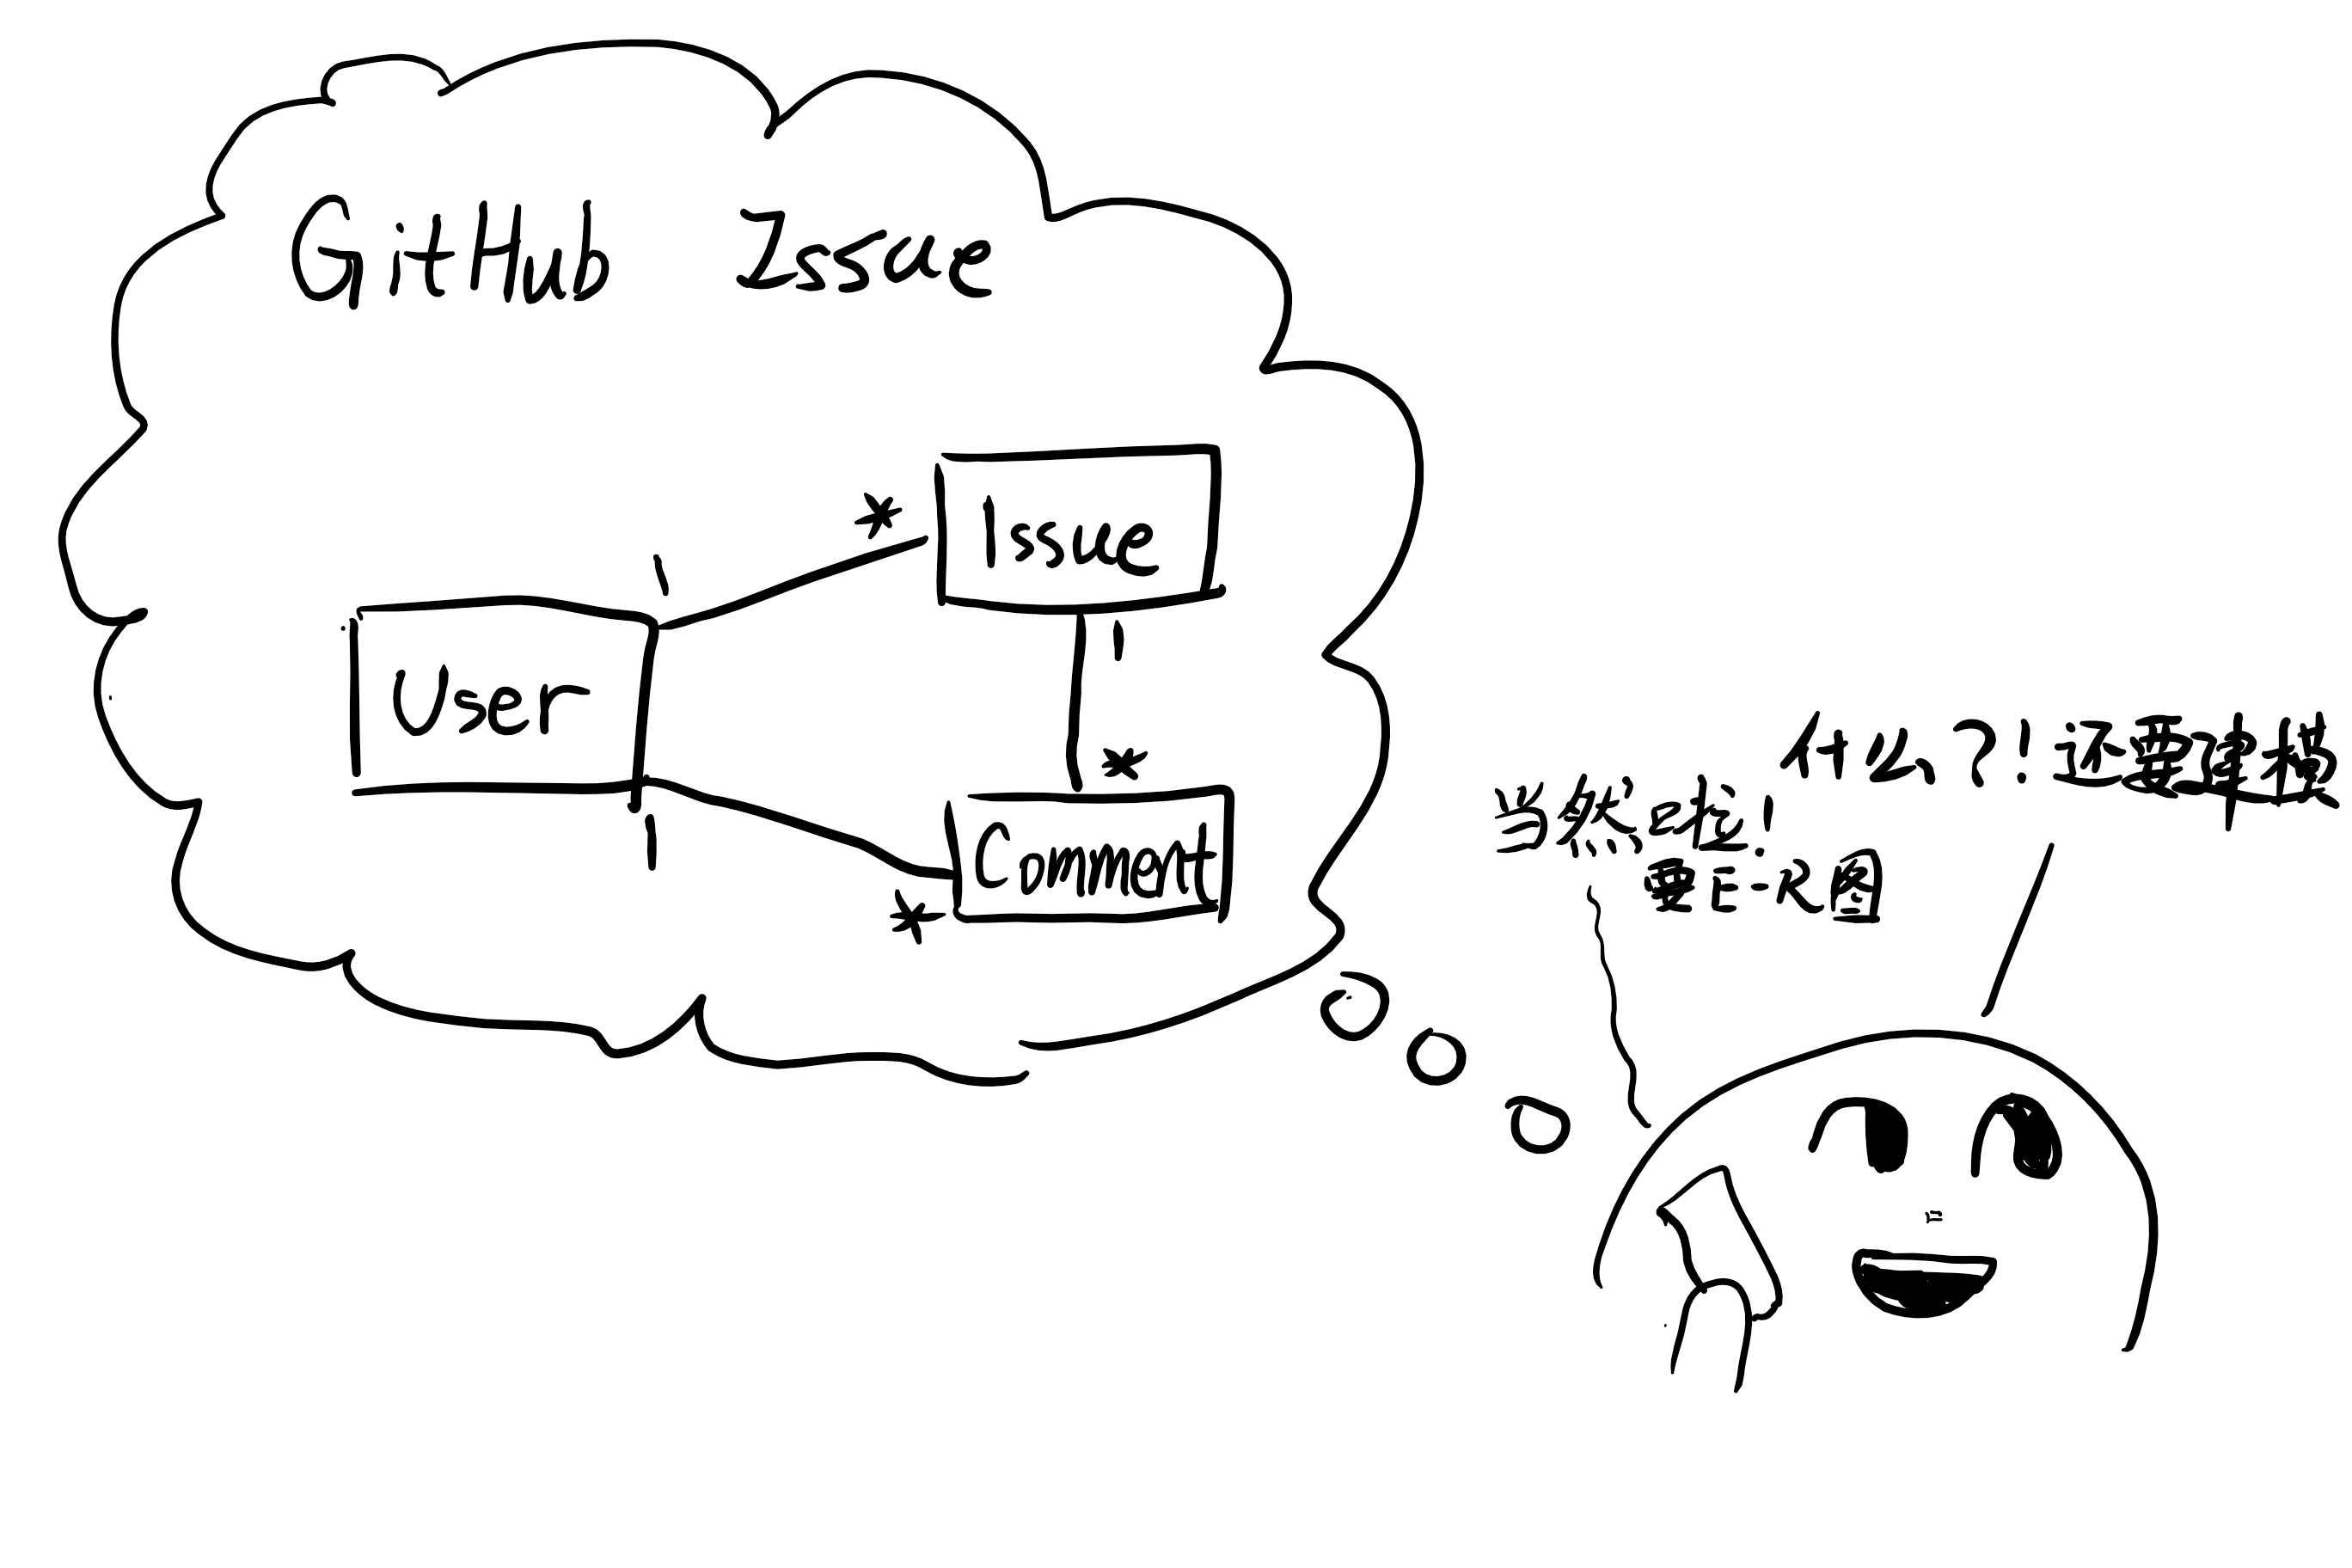 GitHub Issue
*
Issue
1
User
1
*
Comment
1
*
什么?! 还要建模
当然
要E-R图